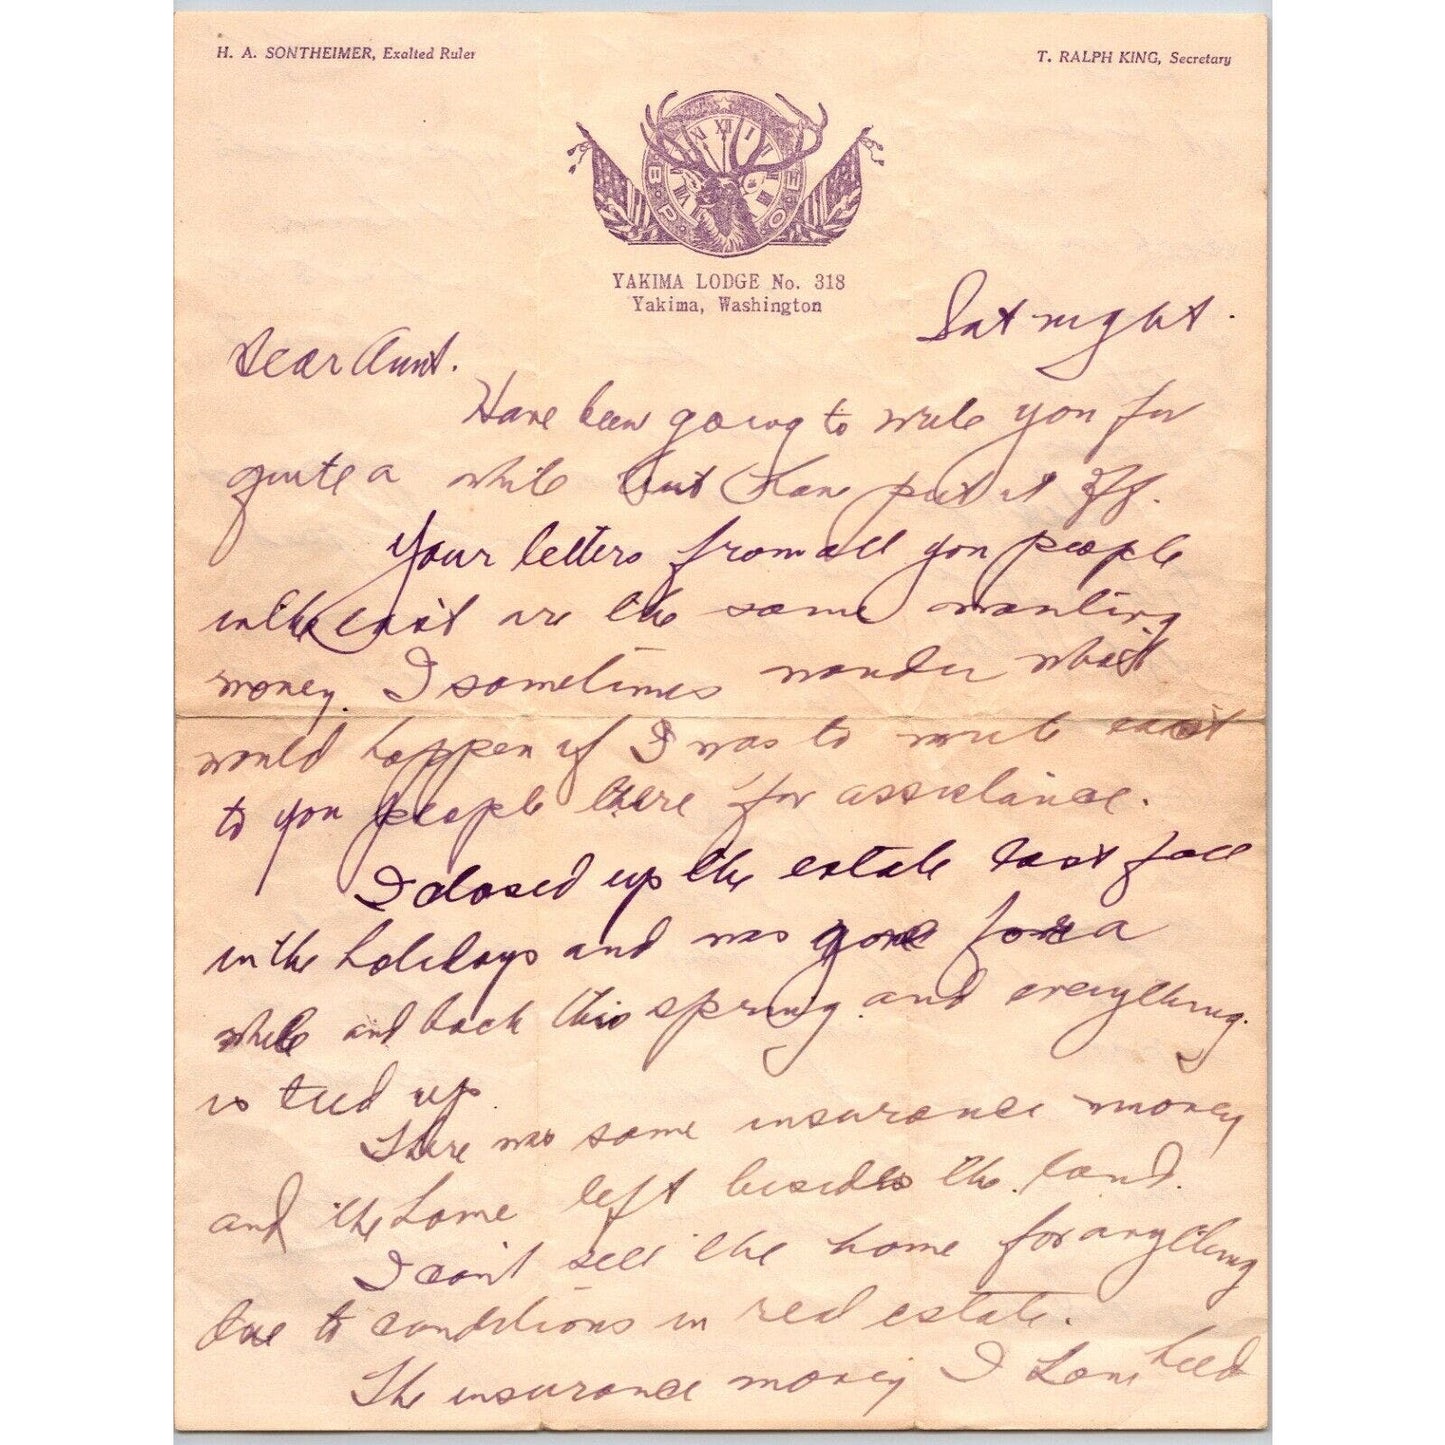 H. A. SONTHEIMER, Exalted Ruler
T. RALPH KING, Secretary
B P O E
YAKIMA LODGE No. 318
Yakima, Washington
Sat night.
Dear Aunt.
Have been going to write you for
quite a while but have put it off.
Your letters from all you people
in the east are the same wanting
money. I sometimes wonder what
would happen if I was to write east
to you people there for assistance.
I closed up the estate last fall
in the holidays and was gone for a
while and back this spring and everything
is tied up.
There was some insurance money
and the home left besides the land.
I can't sell the home for anything
due to conditions in real estate.
The insurance money I have held